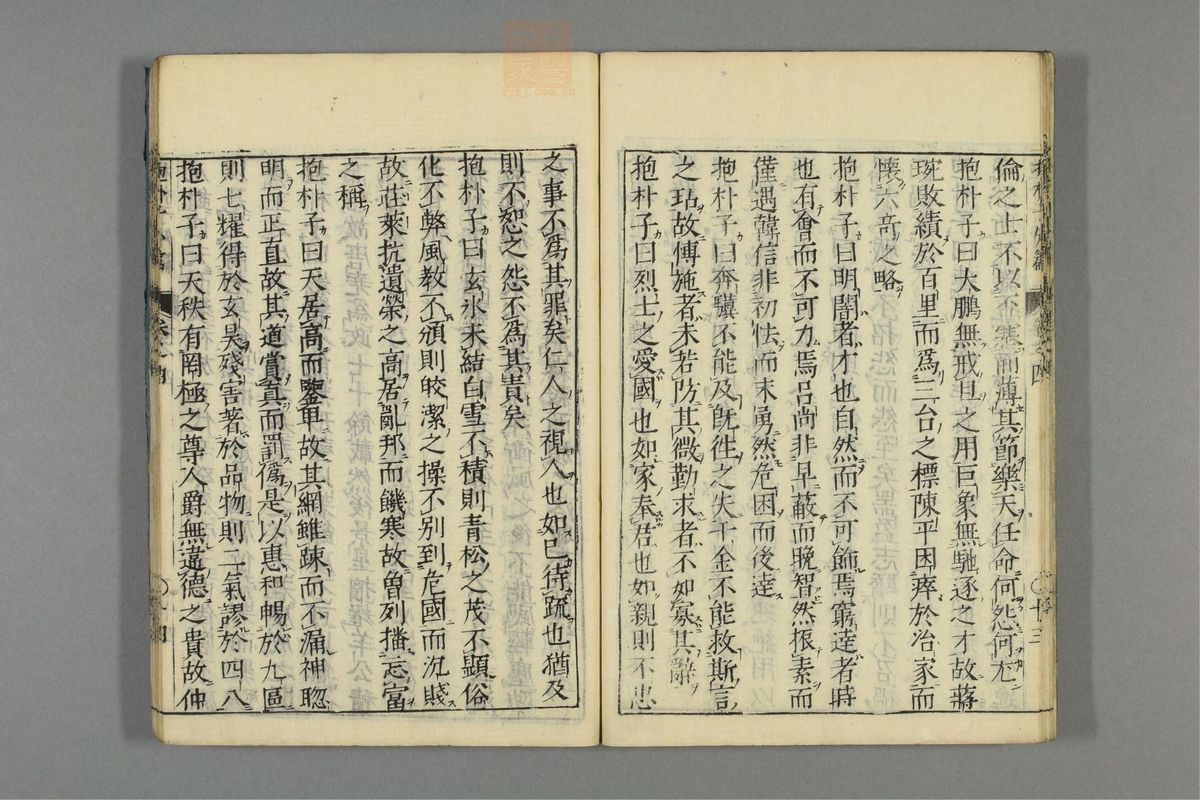 倫之士不以否塞而薄其節樂天任命何怨何尤
抱朴子曰大鵬無戒旦之用巨象無馳逐之才故蔣
琬敗績於百里而爲三台之標陳平困瘁於冶家而
懷六奇之略
抱朴子曰明闇者才也自然而不可飾焉窮達者時
也有會而不可力焉呂尚非早蔽而晚智然振素而
僅遇韓信非初怯而末勇然危困而後達
抱朴子曰奔驥不能及旣徃之失千金不能救斯言
之玷故博施者未若防其微勤求者不如寡其辭
抱朴子曰烈士之愛國也如家奉君也如親則不忠
之事不爲其罪矣仁人之視人也如己待疏也猶及
則不恕之怨不爲其責矣
抱朴子曰玄氷未結白雪不積則青松之茂不顯俗
化不弊風教不頽則皎潔之操不別到危國而沉賤
故莊萊抗遺榮之高居亂邦而饑寒故曾列播忘富
之稱
抱朴子曰天居高而鑒卑故其網雖疎而不漏神聡
明而正直故其道賞真而罰僞是以惠和暢於九區
則七耀得於玄昊殘害著於品物則二氣謬於四八
抱朴子曰天秩有罔極之尊人爵無違德之貴故仲